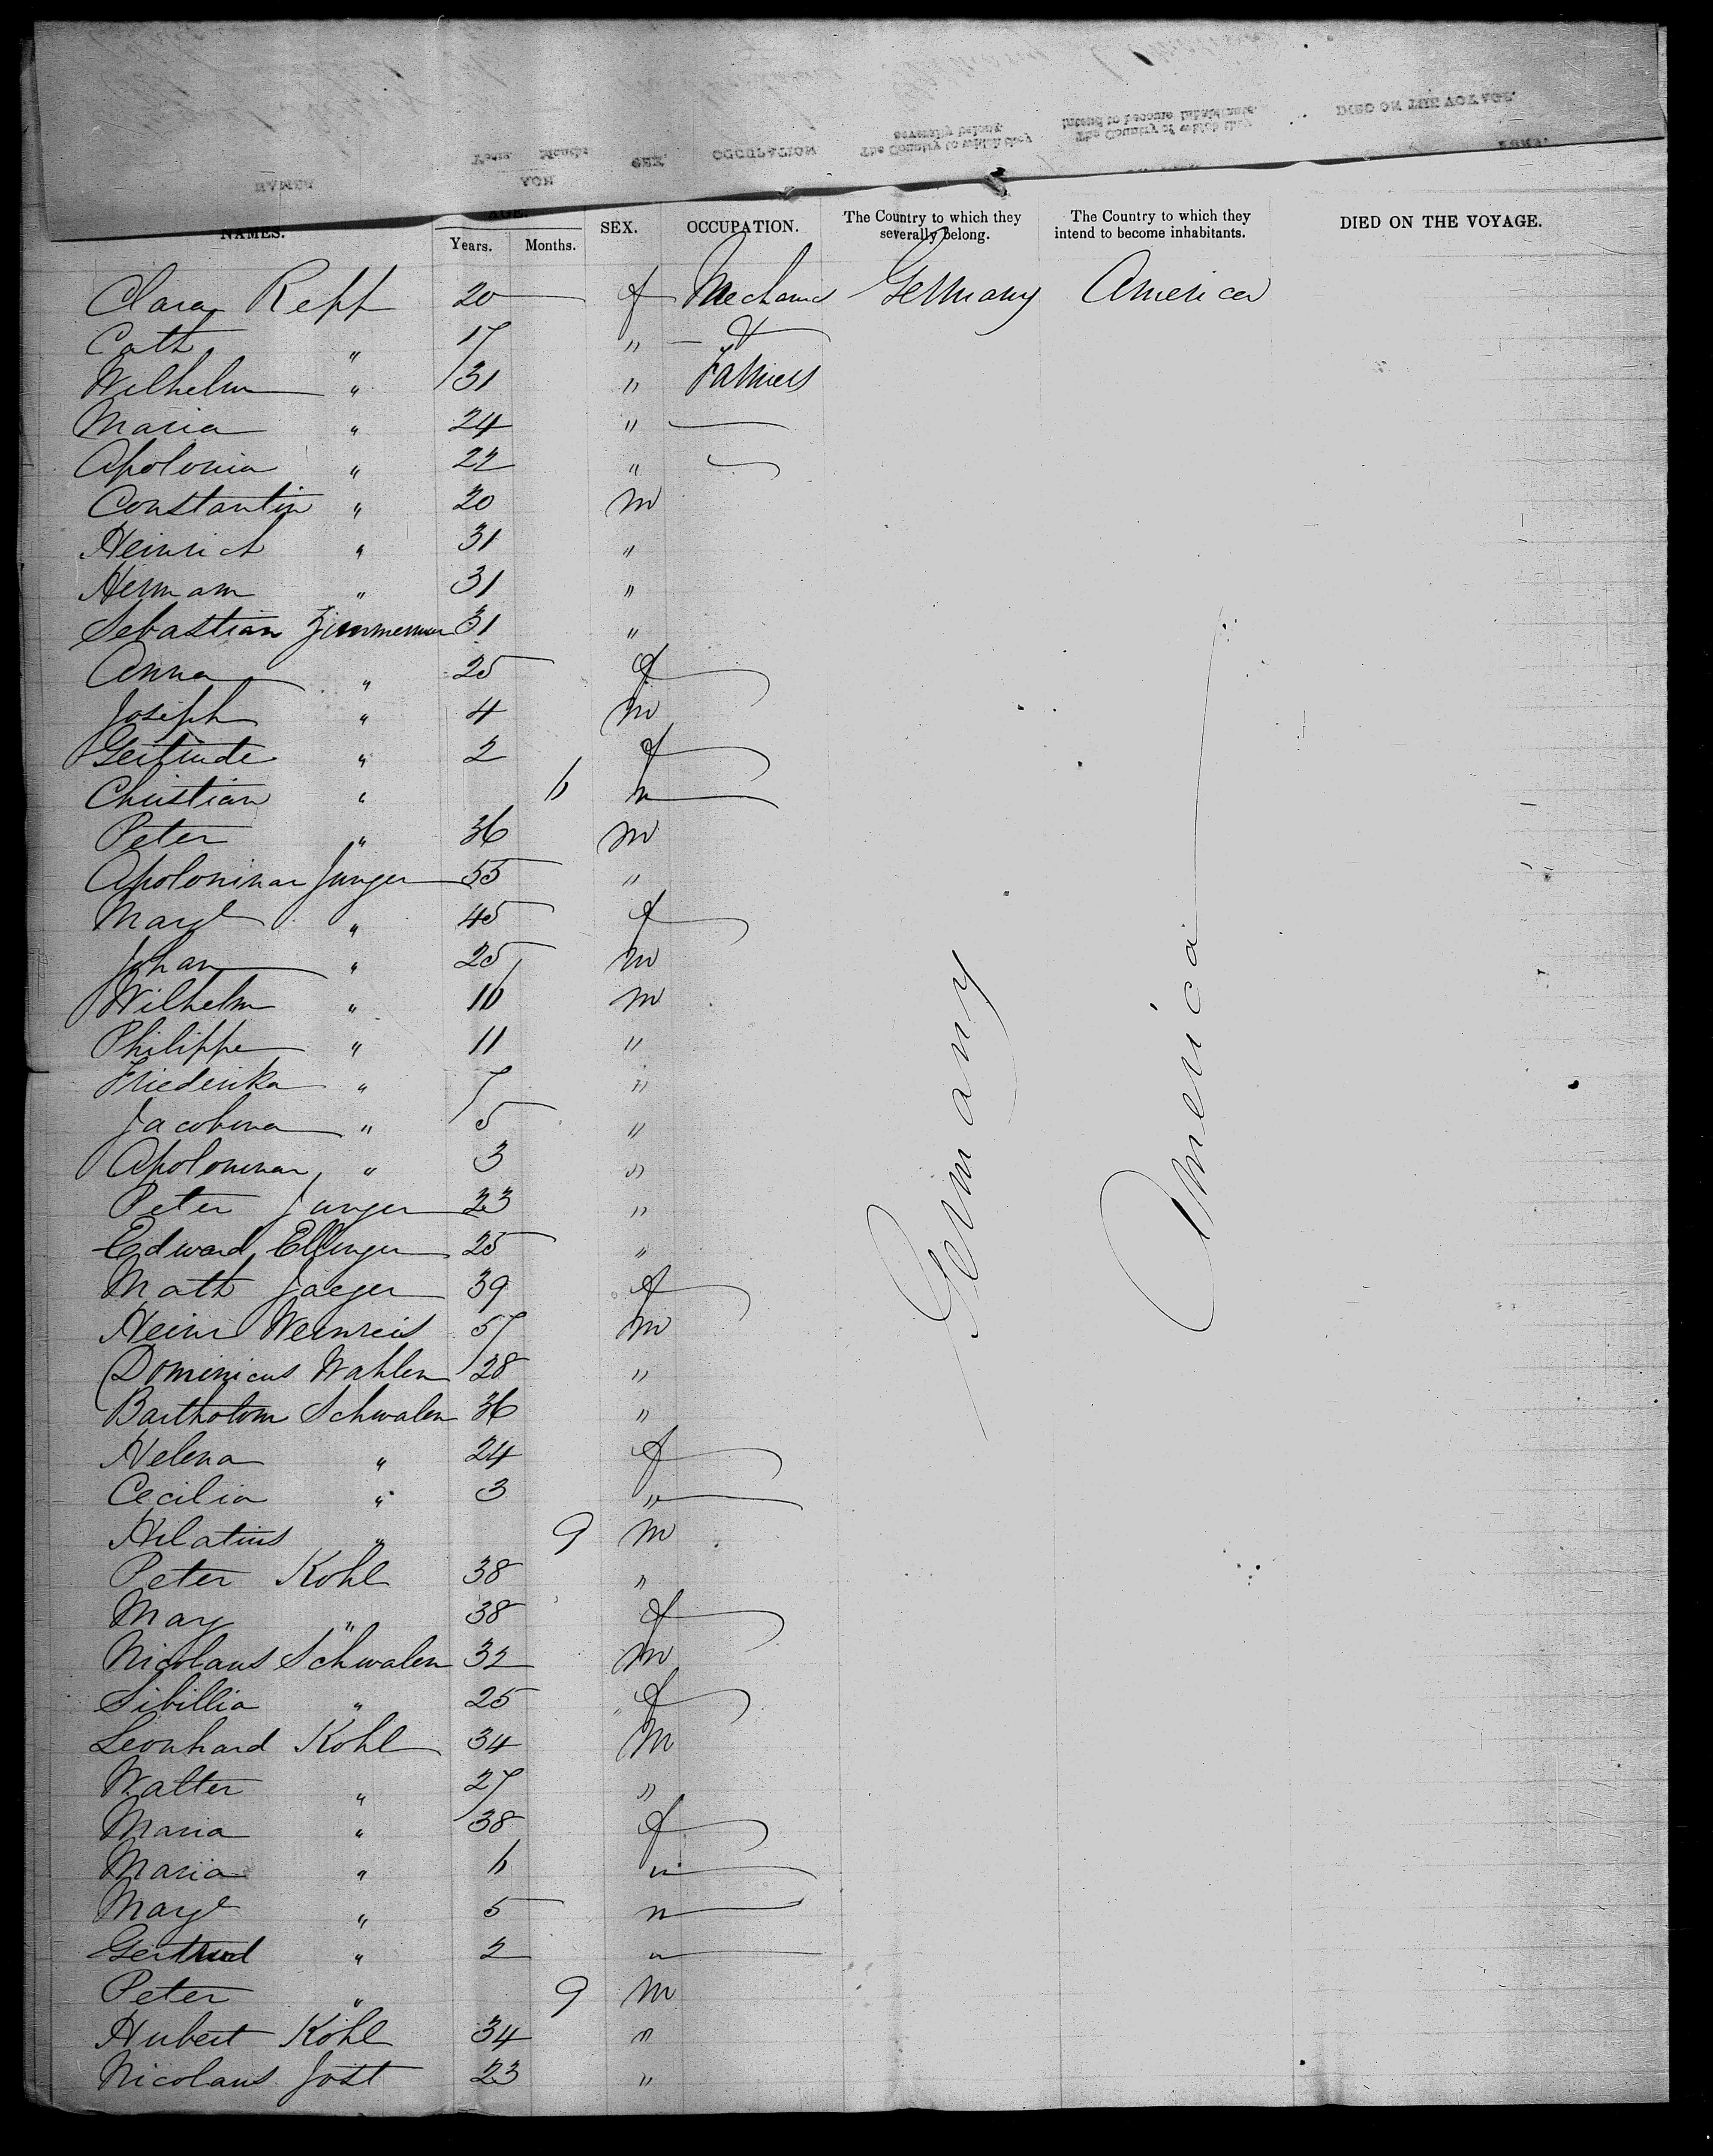 NAMES. AGE. Years. Months. SEX. OCCUPATION. The Country to which they severally belong. The Country to which they intend to become inhabitants. DIED ON THE VOYAGE.
Clara Repp 20 f Mechanics Germany America
Cath " 17 "
Wilhelm " 31 " Farmers
Maria " 24 "
Apolonia " 22 "
Constantin " 20 m
Heinrich " 31 "
Hermann " 31 "
Sebastian Zimmerman 31 "
Anna " 25 f
Joseph " 4 m
Gertrude " 2 f
Christian " 6
Peter " 36 m
Apoloninar Junger 55 "
Margt " 45 f
Johan " 25 m
Wilhelm " 16 m
Philippe " 11 "
Friederika " 7 "
Jacobina " 5 "
Apoloninar " 3 "
Peter Junger 23 "
Edward Ellinger 25 "
Math Jaeger 39 f
Heinr Weinreis 57 m
Dominicus Wahlen 28 "
Bartholom Schwalen 36 "
Helena " 24 f
Cecilia " 3 "
Hilarius " 9 m
Peter Kohl 38 "
May " 38 f
Nicolaus Schwalen 32 m
Sibillia " 25 f
Leonhard Kohl 34 m
Walter " 27 "
Maria " 38 f
Maria " 6 "
Margt " 5 "
Gertrud " 2 "
Peter " 9 m
Hubert Kohl 34 "
Nicolaus Jost 23 "
Germany
America